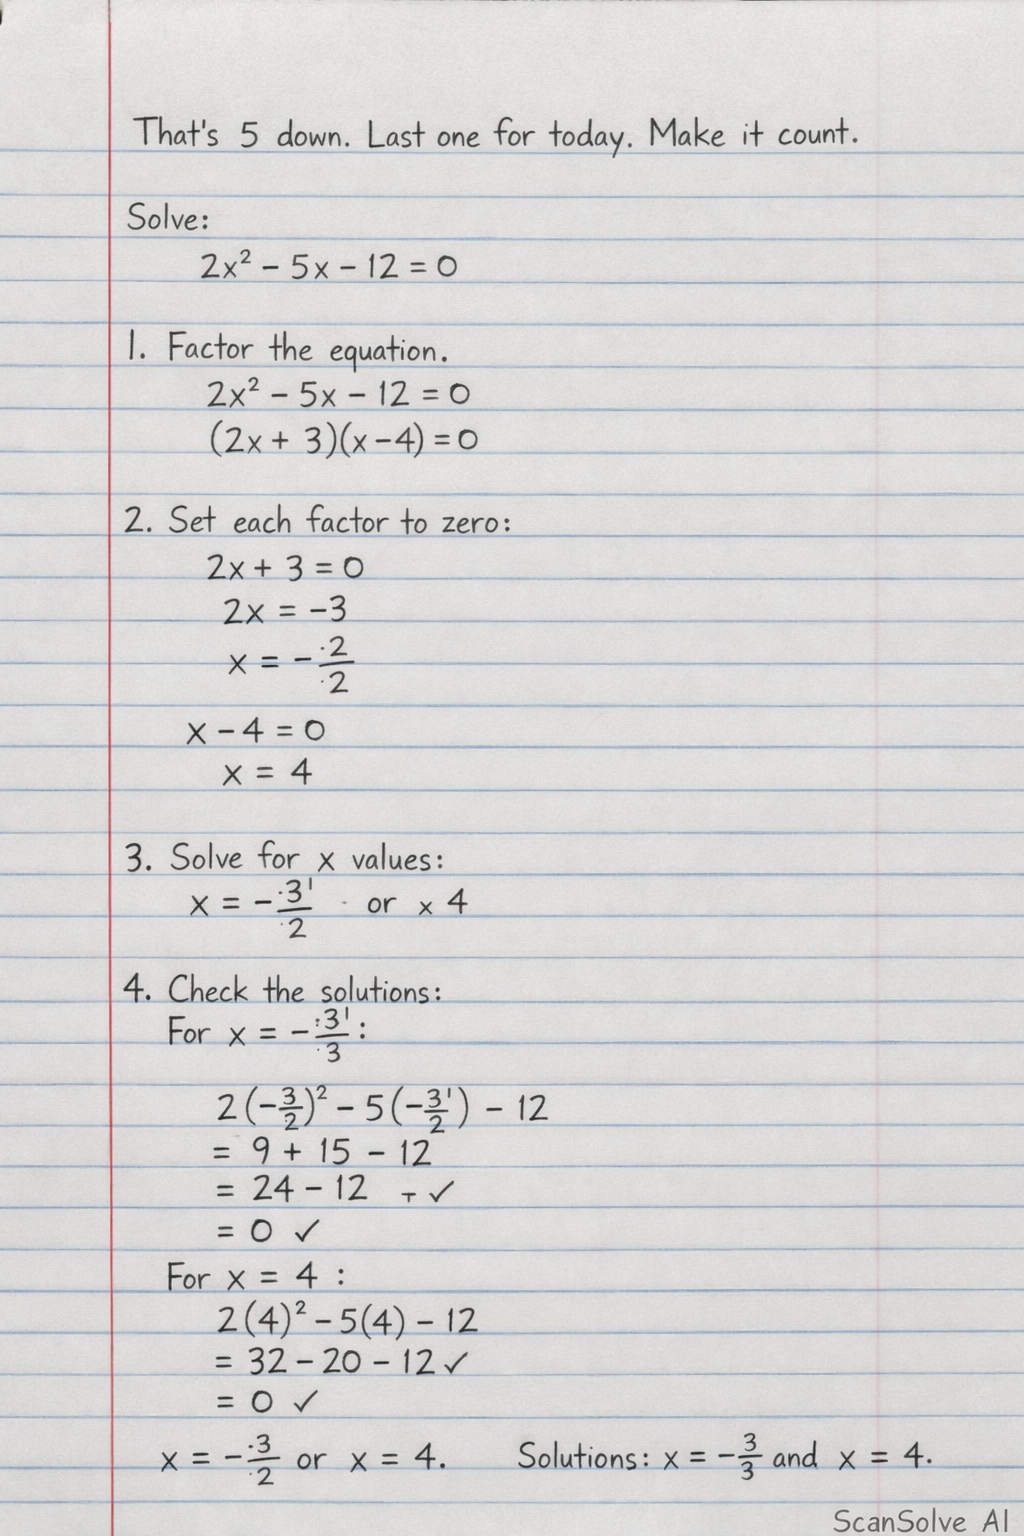 That's 5 down. Last one for today. Make it count.
Solve:
2x² – 5x – 12 = 0
1. Factor the equation.
2x² – 5x – 12 = 0
(2x + 3)(x – 4) = 0
2. Set each factor to zero:
2x + 3 = 0
2x = –3
x = –2/2
x – 4 = 0
x = 4
3. Solve for x values:
x = –3'/2 or x 4
4. Check the solutions:
For x = –3'/3 :
2(–3/2)² – 5(–3'/2) – 12
= 9 + 15 – 12
= 24 – 12 ✓
= 0 ✓
For x = 4 :
2(4)² – 5(4) – 12
= 32 – 20 – 12 ✓
= 0 ✓
x = –3/2 or x = 4. Solutions: x = –3/3 and x = 4.
ScanSolve AI